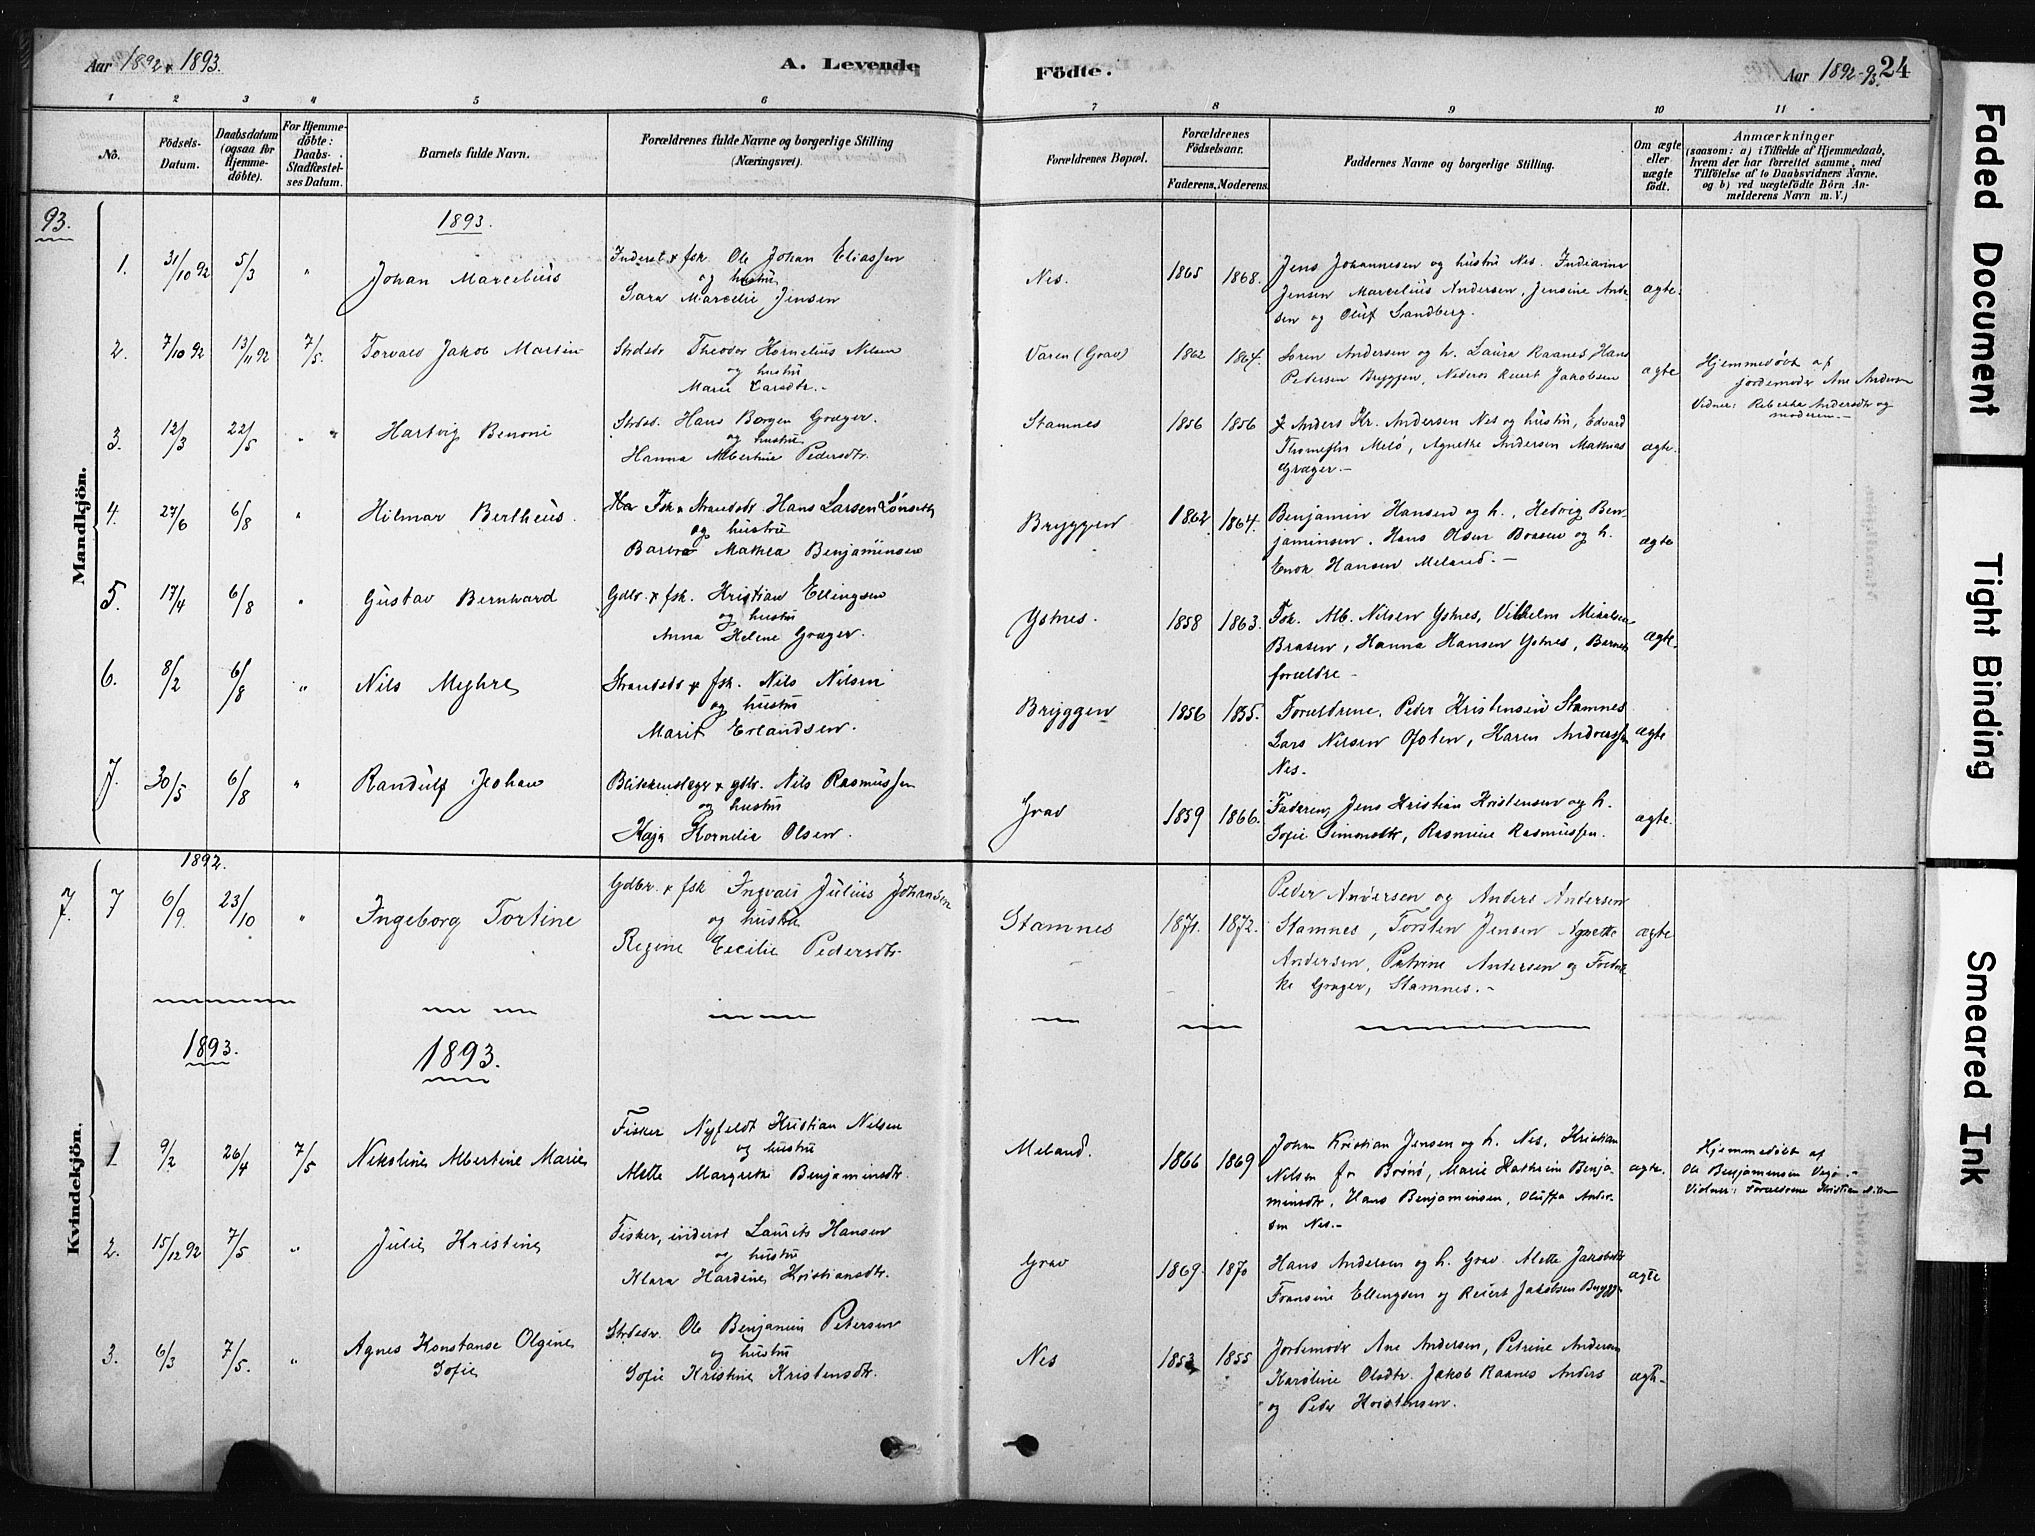 Aar 1892 & 1893.
A. Levende
Födte.
Aar 1892-93. 24
1 2 3 4 5 6 7 8 9 10 11
No.
Födsels-
Datum.
Daabsdatum
(ogsaa for
Hjemme-
döbte).
For Hjemme-
döbte:
Daabs-
Stadfæstel-
ses Datum.
Barnets fulde Navn.
Forældrenes fulde Navne og borgerlige Stilling
(Næringsvei).
Forældrenes Bopæl.
Forældrenes
Födselsaar.
Faderens. Moderens.
Faddernes Navne og borgerlige Stilling.
Om ægte
eller
uægte
födt.
Anmærkninger
(saasom: a) i Tilfælde af Hjemmedaab,
hvem der har forrettet samme, med
Tilföielse af to Daabsvidners Navne.
og b) ved uægtefödte Börn An-
melderens Navn m. V.)
93.
1893.
Mandkjön.
1. 31/10 92 5/3 " Johan Marcelius
Inderst & fsk. Ole Johan Eliassen
og hustru
Sara Marcelie Jensen
Nes. 1865 1868.
Jens Johannesen og hustru Nes. Indianna
Jensen Marcelius Andersen, Jensine Ander
sen og Oluf Sandberg.
ægte.
2. 7/10 92 13/11 92 7/5. Torvald Jakob Martin
Strdsdr Theodor Kornelius Nilsen
og hustru
Marie Larsdtr.-
Varen (Grav) 1862 1864.
Sören Andersen og h. Laura Raanes Hans
Petersen Bryggen, Reiert Jakobsen
ægte
Hjemmedøbt af
jordemoder Ane Andersen
Vidner: Rebekka Andersdtr og
moderen.-
3. 12/3 22/5 " " Hartvig Benoni
Strdsd. Hans Borgen Græger.
og hustru
Hanna Albertine Pedersdtr.
Stamnes 1856 1856
Anders Kr. Andersen Nes og hustru, Edvard
Thomessen Melö, Agnethe Andersen Mathias
Græger.-
ægte.
4. 27/6 6/8 " Hilmar Bertheus.
Fsk & Strandsdr. Hans Larsen Lønseth
og hustru
Barbro Mathea Benjaminsen
Bryggen 1862 1864.
Benjamin Hansen og h., Hedvig Ben-
jaminsen. Hans Olsen Brasen og h.
Enok Hansen Meland.-
ægte
5. 17/4 6/8 " Gustav Bernhard
Gdbr. & fsk. Kristian Ellingsen
og hustru
Anna Helene Græger.
Ystnes. 1858 1863.
Joh. Alb. Nilsen Ystnes, Vilhelm Mikalsen
Brasen, Hanna Hansen Ystnes, Barnets
forældre-
ægte.
6. 8/2 6/8 " Nils Myhre
Strandsdr & fsk. Nils Nilsen
og hustru
Marit Erlandsen.
Bryggen 1856 1855.
Forældrene. Peder Kristensen Stamnes
Lars Nilsen Ofoten, Karen Andreassen
Nes.
ægte
7. 30/5 6/8 " Randulf Johan
Blikkenslager & gdbr. Nils Rasmussen
og hustru
Kaja Kornelia Olsen.
Grav 1859 1866.
Faderen, Jens Kristian Kristensen og h.
Sofie Simonsdtr, Rasmine Rasmussen.
ægte.
Kvindekjön.
1892.
7. 7 6/9. 23/10 " Ingeborg Tortine
Gdbr. & fsk Ingvald Julius Johansen
og hustru
Regine Cecilie Pedersdtr.
Stamnes 1871. 1872.
Peder Andersen og Anders Andersen
Stamnes, Torsten Jensen Agnethe
Andersen, Petrine Andersen og Fredrik
ke Græger, Stamnes.-
ægte
1893. 1893.
1 9/2 26/4 7/5 Nikoline Albertine Marie
Fisker Nyfeldt Kristian Nilsen
og hustru
Alette Margrethe Benjaminsdtr.
Meland. 1866 1869
Johan Kristian Jensen og h. Nes, Kristian
Nilsen fr Brönö, Marie Kathrine Benja
minsdtr, Hans Benjaminsen, Oluffa Ander-
sen Nes.-
ægte.
Hjemmedøbt af
Ole Benjaminsen Vega.-
Vidner: Forældrene Kristian Nilsen
2. 15/12 92 7/5 " Julie Kristine
Fisker, inderst Laurits Hansen
og hustru
Klara Hardine Kristiansdtr.
Grav 1869. 1870
Hans Andersen og h. Grav Alette Jakobsdtr
Fransine Ellingsen og Reiert Jakobsen Bryggen
ægte
3. 6/3 7/5. " Agnes Konstanse Olgine
Sofie
Strdsdr. Ole Benjamin Petersen
og hustru
Sofie Kristine Kristensdtr.
Nes 1853 1855
Jordemoder Ane Andersen, Petrine Andersen
Karoline Olsdtr. Jakob Raanes Anders
og Peder Kristensen.
ægte.
Faded Document
Tight Binding
Smeared Ink